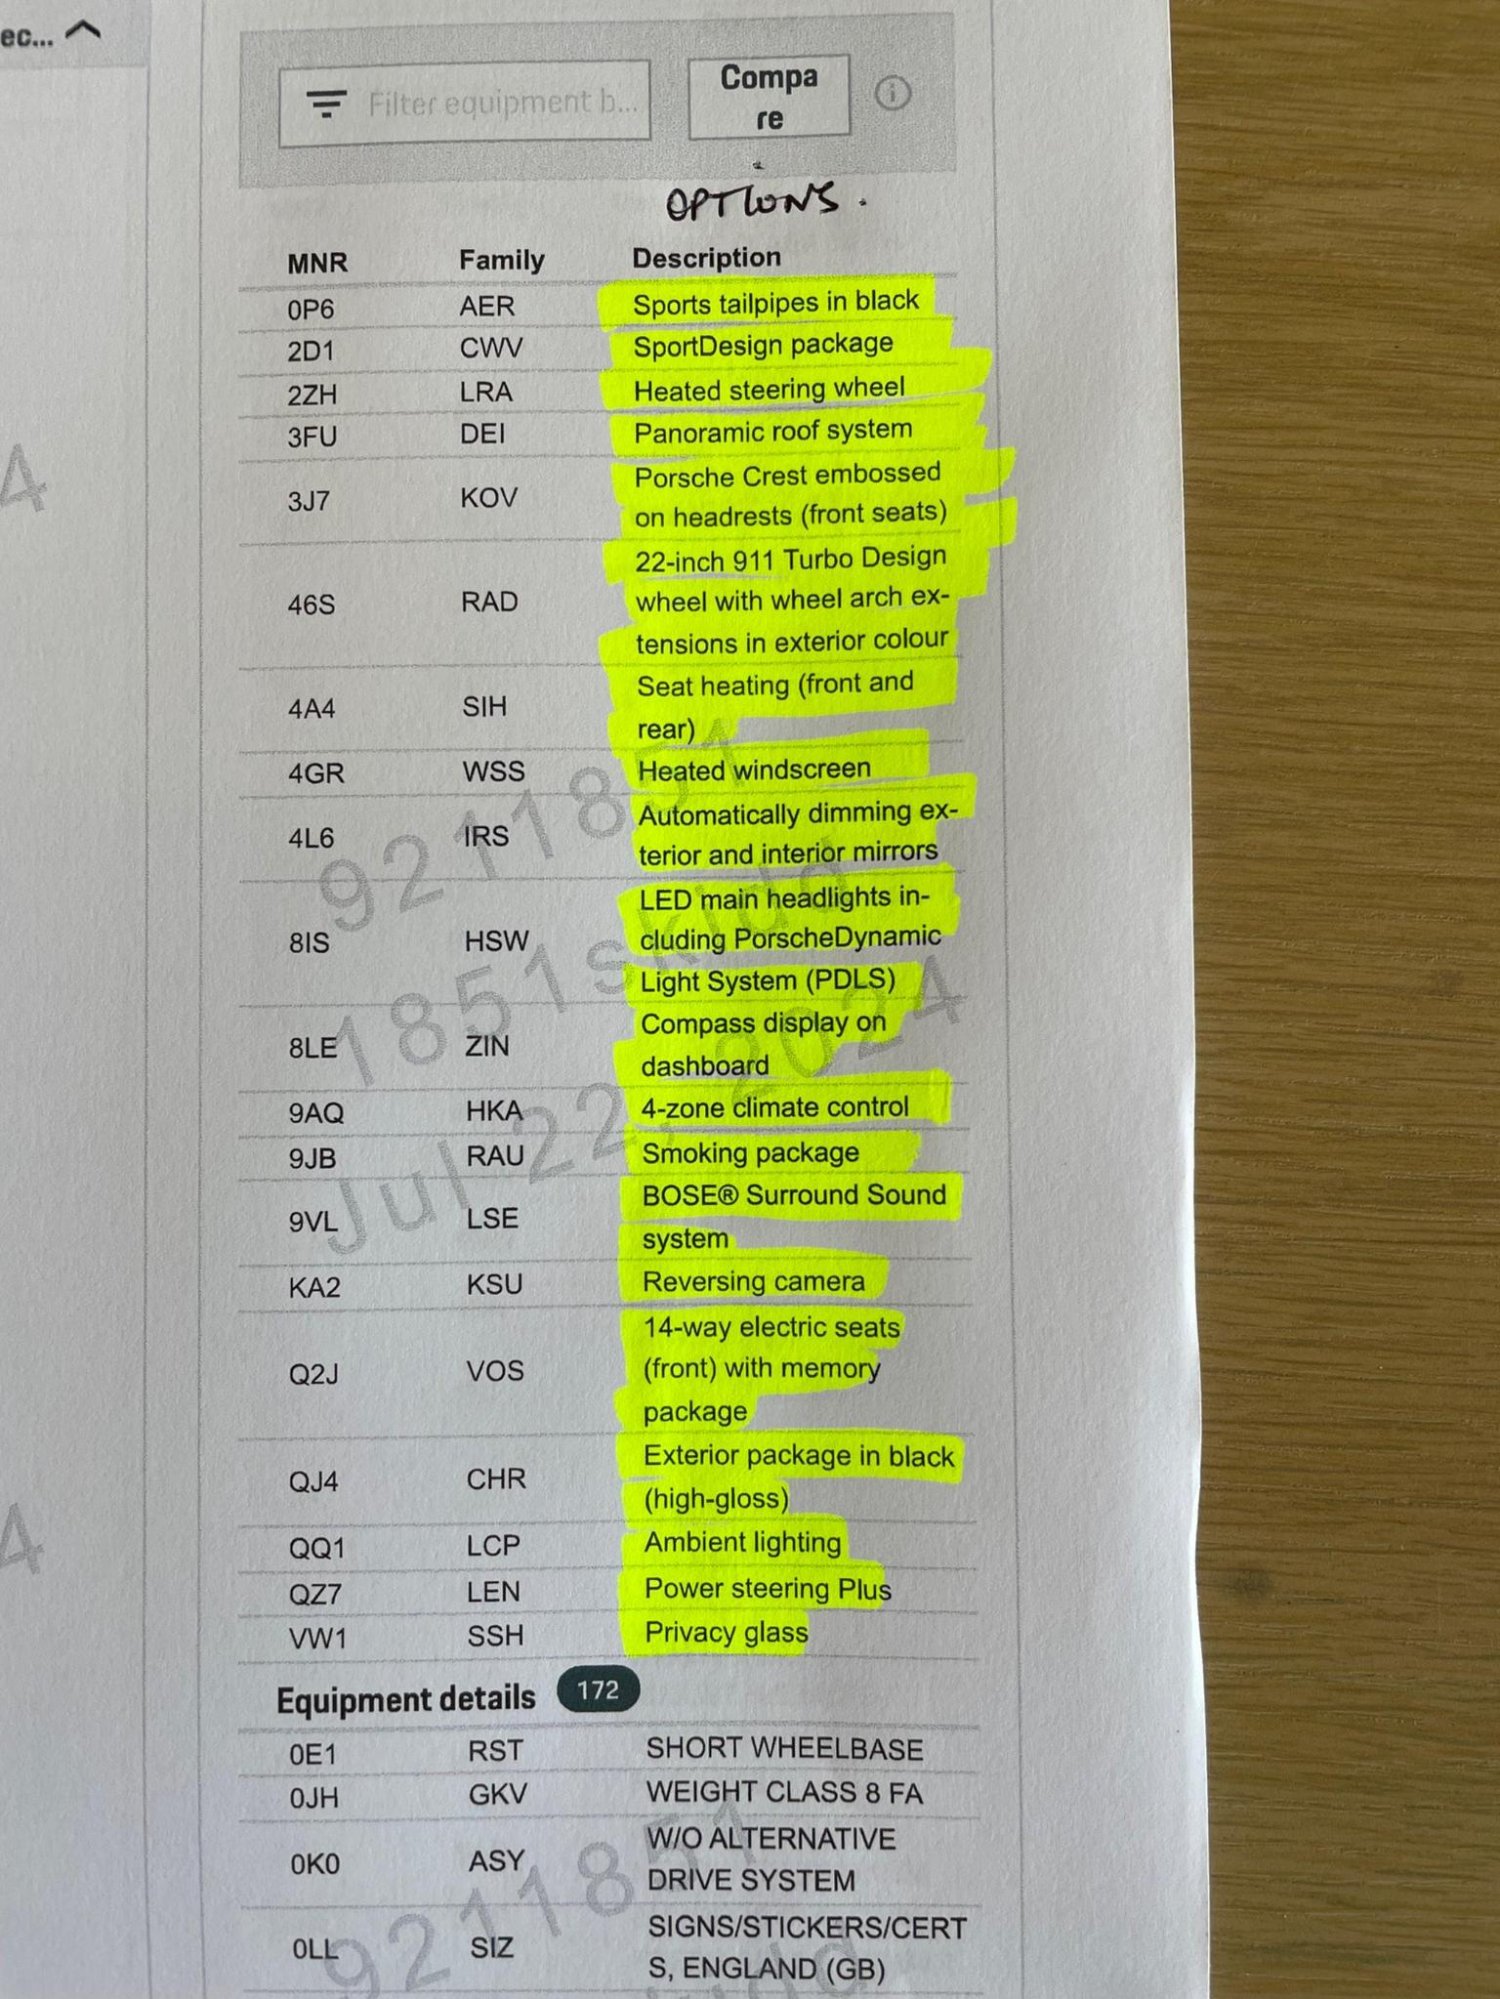 ec...
Filter equipment b...
Compa
re
OPTIONS.
MNR Family Description
0P6 AER Sports tailpipes in black
2D1 CWV SportDesign package
2ZH LRA Heated steering wheel
3FU DEI Panoramic roof system
3J7 KOV Porsche Crest embossed
on headrests (front seats)
46S RAD 22-inch 911 Turbo Design
wheel with wheel arch ex-
tensions in exterior colour
4A4 SIH Seat heating (front and
rear)
4GR WSS Heated windscreen
4L6 IRS Automatically dimming ex-
terior and interior mirrors
8IS HSW LED main headlights in-
cluding PorscheDynamic
Light System (PDLS)
8LE ZIN Compass display on
dashboard
9AQ HKA 4-zone climate control
9JB RAU Smoking package
9VL LSE BOSE® Surround Sound
system
KA2 KSU Reversing camera
Q2J VOS 14-way electric seats
(front) with memory
package
QJ4 CHR Exterior package in black
(high-gloss)
QQ1 LCP Ambient lighting
QZ7 LEN Power steering Plus
VW1 SSH Privacy glass
Equipment details 172
0E1 RST SHORT WHEELBASE
0JH GKV WEIGHT CLASS 8 FA
0K0 ASY W/O ALTERNATIVE
DRIVE SYSTEM
0LL SIZ SIGNS/STICKERS/CERT
S, ENGLAND (GB)
9211851
1851skidd
Jul 22, 2024
9211851
4
4